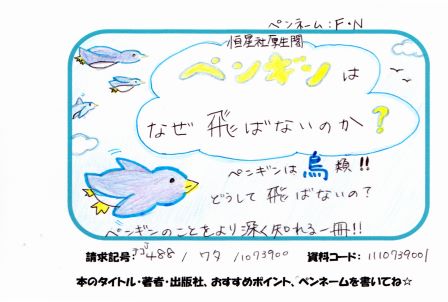 ペンネーム:F・N
恒星社厚生閣
ペンギンは
なぜ飛ばないのか?
ペンギンは鳥類!!
どうして飛ばないの?
ペンギンのことをより深く知れる一冊!!
請求記号: 488 / ワタ /1073900 資料コード: 1110739001
本のタイトル・著者・出版社、おすすめポイント、ペンネームを書いてね☆